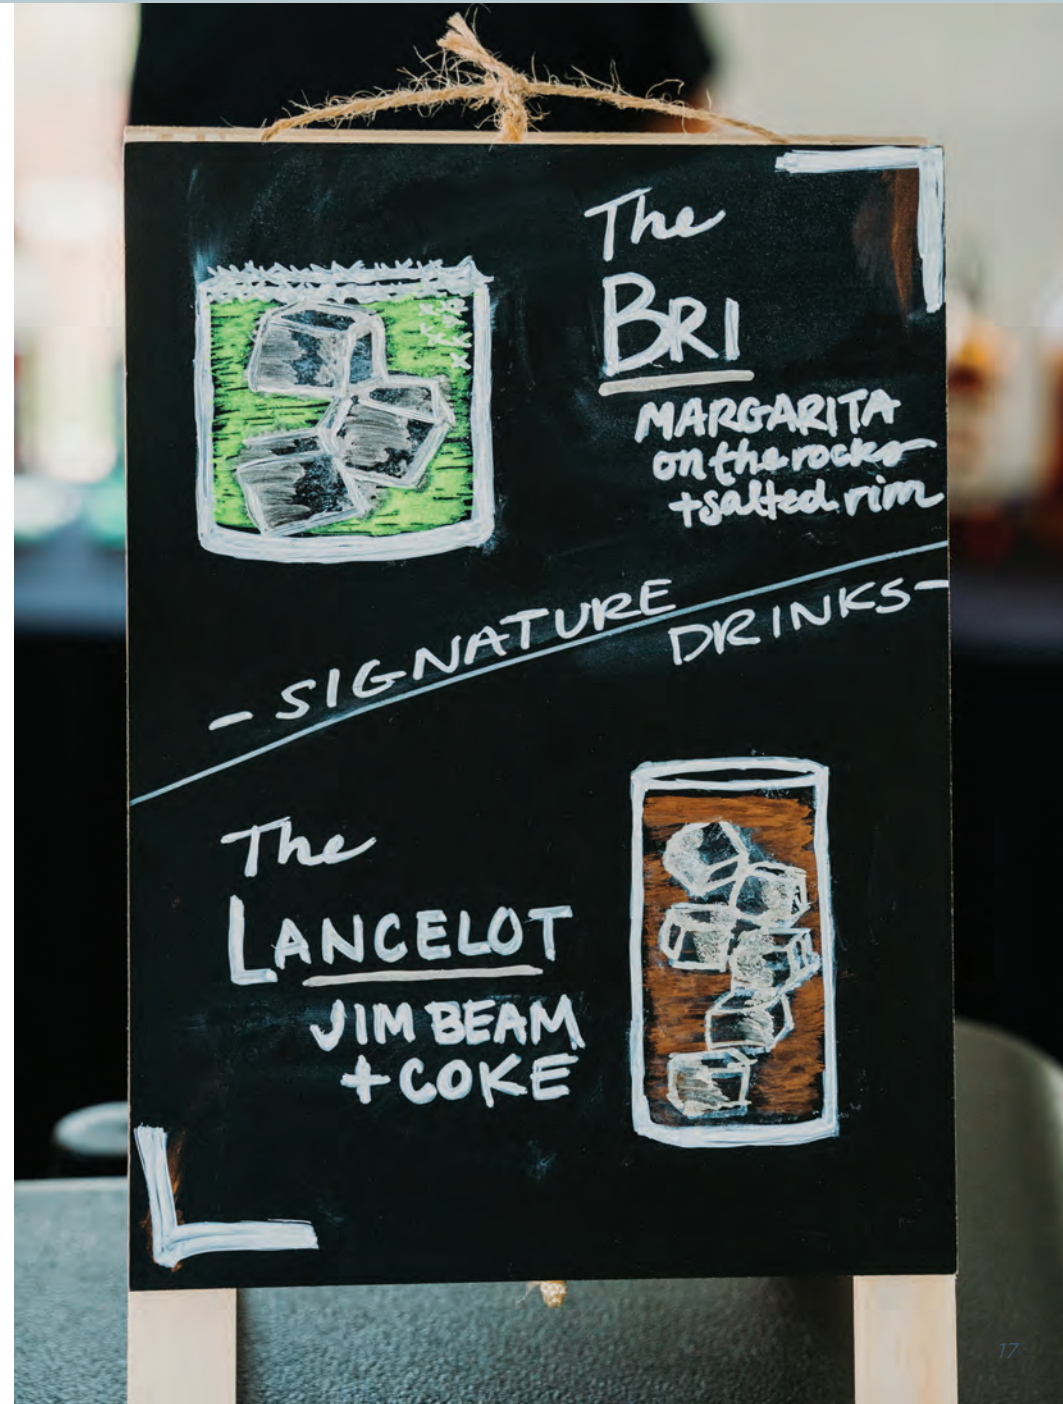 The
BRI
MARGARITA
on the rocks
+salted rim
- SIGNATURE
DRINKS -
The
LANCELOT
JIM BEAM
+ COKE
17